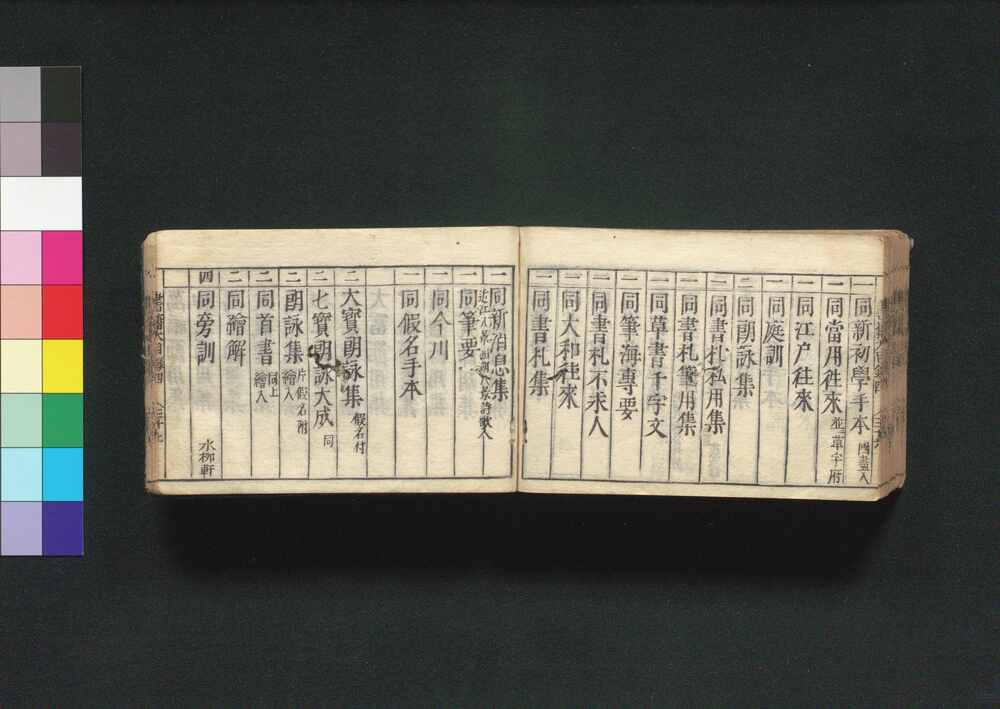 一 同新初學手本
一 同當用徃來
一 同江户徃來
一 同庭訓
二 同朗詠集
一 同書札私用集
一 同書札筆用集
一 同草書千字文
一 同筆海專要
一 同書札不求人
一 同大和徃來
一 同書札集
一 同新消息集
一 同筆要
一 同今川
一 同假名手本
二 大寳朗詠集 假名付
二 七寳朗詠大成 同
二 朗詠集 片假名附 繪入
二 同首書 同上 繪入
二 同繪解
四 同旁訓 水柳軒